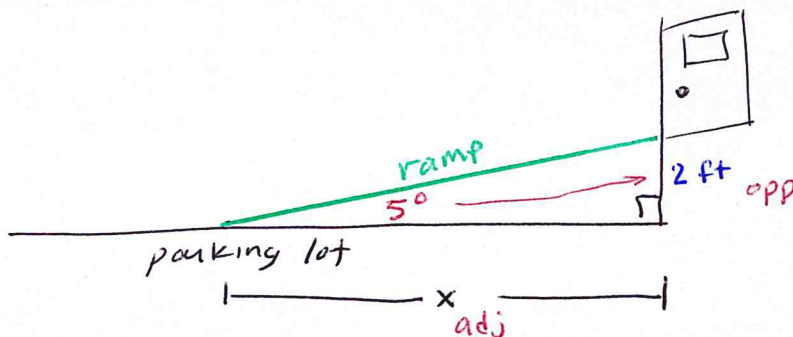 ramp
5°
2 ft
opp
parking lot
x
adj